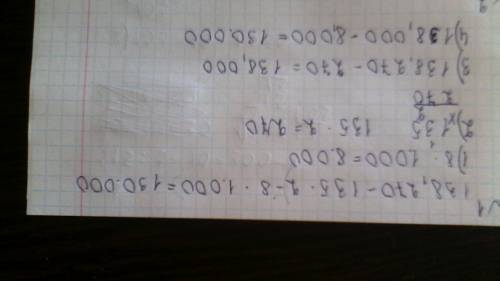 √1
138,270 - 135 · 2 - 8 · 1.000 = 130.000
1) 8 · 1000 = 8.000
2) x 135    135 · 2 = 270
2
270
3) 138,270 - 270 = 138,000
4) 138,000 - 8,000 = 130.000